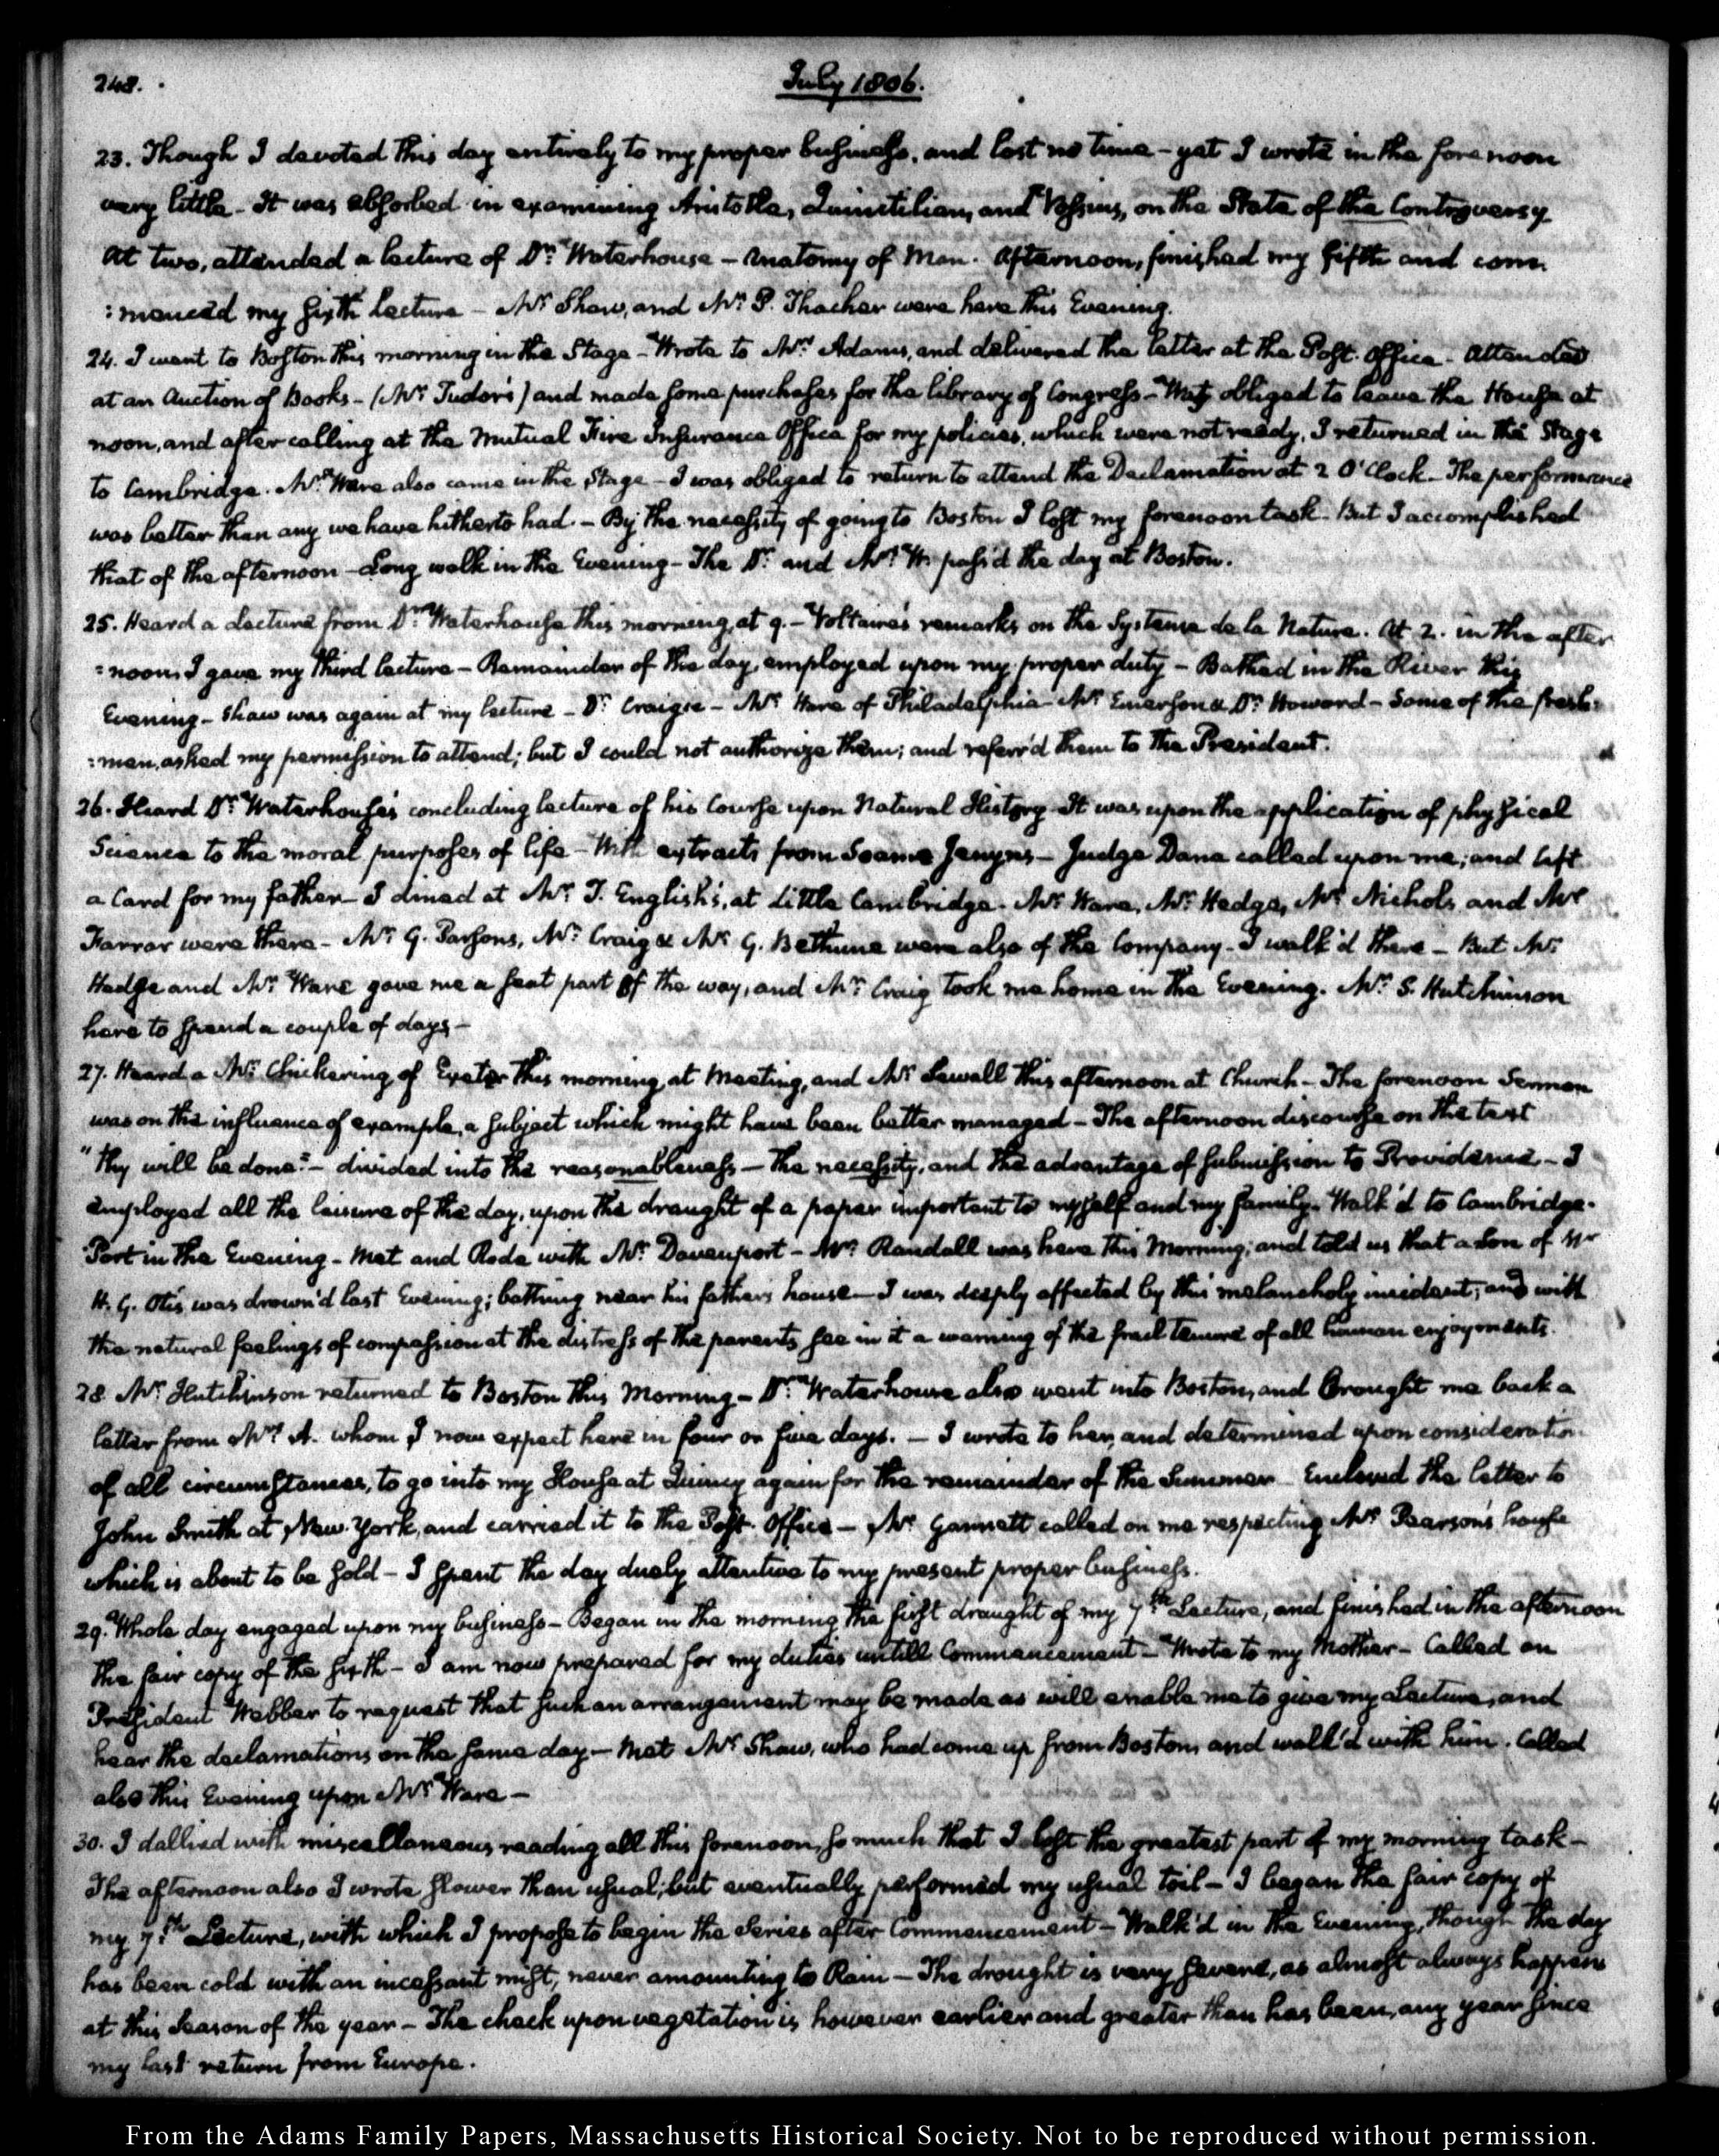 248.
July 1806.
23. Though I devoted this day entirely to my proper business, and lost no time – yet I wrote in the forenoon
very little – It was absorbed in examining Aristotle, Quinctilian, and Vossius, on the State of the Controversy
At two, attended a lecture of Dr. Waterhouse – Anatomy of Man. Afternoon, finished my fifth and com
:menced my sixth Lecture – Mr. Shaw, and Mr. P. Thacher were here this Evening.
24. I went to Boston this morning in the Stage – Wrote to Mrs. Adams, and delivered the letter at the Post-Office – Attended
at an Auction of Books – (Mr. Tudor's) and made some purchases for the library of Congress – Was obliged to leave the House at
noon, and after calling at the Mutual Fire Insurance Office for my policies, which were not ready, I returned in the Stage
to Cambridge. Mr. Ware also came in the Stage – I was obliged to return to attend the Declamation at 2 O'Clock – The performance
was better than any we have hitherto had. – By the necessity of going to Boston I lost my forenoon task – But I accomplished
that of the afternoon – Long walk in the Evening – The Dr. and Mrs. W. pass'd the day at Boston.
25. Heard a Lecture from Dr. Waterhouse this morning, at 9. – Voltaire's remarks on the Systeme de la Nature. At 2. in the after
=noon I gave my third lecture – Remainder of the day, employed upon my proper duty – Bathed in the River this
Evening – Shaw was again at my lecture – Dr. Craigie – Mr. Hare of Philadelphia – Mr. Emerson & Dr. Howard – Some of the fresh:
:men, asked my permission to attend; but I could not authorize them; and referr'd them to the President.
26. Heard Dr. Waterhouse's concluding lecture of his Course upon Natural History – It was upon the application of physical
Science to the moral purposes of life – With extracts from Soame Jenyns – Judge Dana called upon me; and left
a Card for my father – I dined at Mr. T. English's, at Little Cambridge. Mr. Ware, Mr. Hedge, Mr. Nichols, and Mr.
Farrar were there – Mr. G. Parsons, Mr. Craig & Mr. G. Bethune were also of the Company – I walk'd there – But Mr.
Hedge and Mr. Ware gave me a seat part of the way, and Mr. Craig took me home in the Evening. Mr. S. Hutchinson
here to spend a couple of days –
27. Heard a Mr. Chickering of Exeter this morning, at Meeting, and Mr. Sewall this afternoon at Church – The forenoon Sermon
was on the influence of example, a subject which might have been better managed – The afternoon discourse on the text
"Thy will be done" – divided into the reasonableness – the necessity, and the advantage of submission to Providence – I
employed all the leisure of the day, upon the draught of a paper important to myself and my family – Walk'd to Cambridge-
Port in the Evening – Met and Rode with Mr. Davenport – Mr. Randall was here this Morning; and told us that a Son of Mr
H. G. Otis was drown'd last Evening; bathing near his father's house – I was deeply affected by this melancholy incident; and with
the natural feelings of compassion at the distress of the parents, see in it a warning of the frail tenure of all human enjoyments.
28. Mr. Hutchinson returned to Boston this Morning – Dr. Waterhouse also went into Boston, and brought me back a
letter from Mrs. A. whom I now expect here in four or five days. – I wrote to her, and determined upon consideration
of all circumstances, to go into my House at Quincy again for the remainder of the Summer – Enclosed the letter to
John Smith at New-York, and carried it to the Post-Office – Mr. Gannett called on me respecting Mr. Pearson's house
which is about to be sold – I spent the day duely attentive to my present proper business.
29. Whole day engaged upon my business – Began in the morning the first draught of my 7th. Lecture, and finished in the afternoon
the fair copy of the sixth – I am now prepared for my duties untill Commencement – Wrote to my Mother – Called on
President Webber to request that such an arrangement may be made as will enable me to give my Lecture, and
hear the declamations on the same day – Met Mr. Shaw, who had come up from Boston, and walk'd with him. Called
also this Evening upon Mr. Ware –
30. I dallied with miscellaneous reading all this forenoon, so much that I lost the greatest part of my morning task –
The afternoon also I wrote slower than usual; but eventually performed my usual toil – I began the fair copy of
my 7th. Lecture, with which I propose to begin the Series after Commencement – Walk'd in the Evening, though the day
has been cold with an incessant mist, never amounting to Rain – The drought is very severe, as almost always happens
at this Season of the year – The check upon vegetation is however earlier and greater than has been, any year since
my last return from Europe.
From the Adams Family Papers, Massachusetts Historical Society. Not to be reproduced without permission.